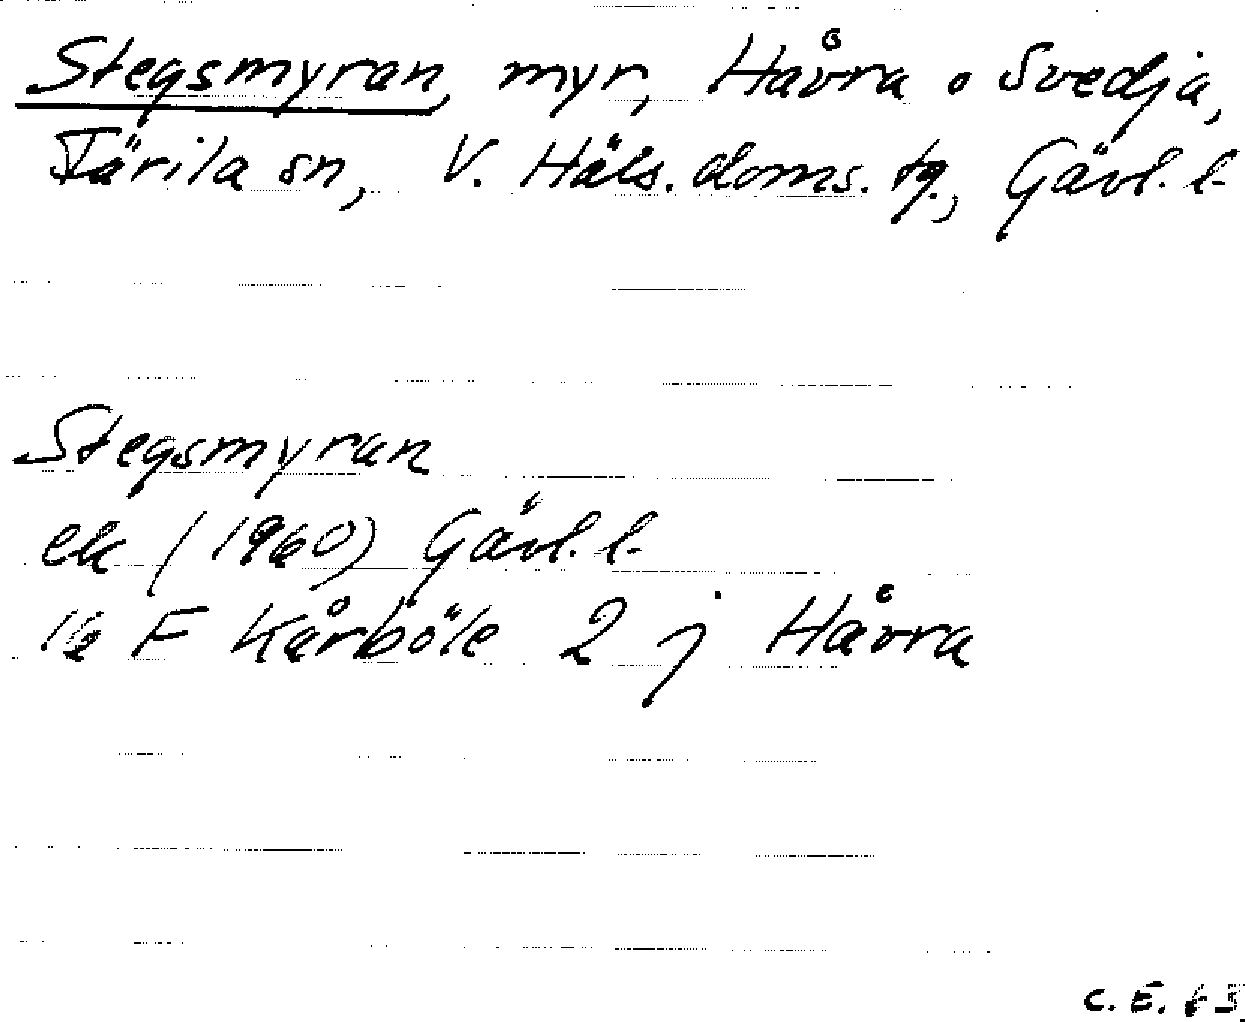 Stegsmyran, myr, Håvra o Svedja,
Färila sn, V. Häls. doms. tg., Gävl. l.
Stegsmyran
ek (1960) Gävl. l.
16 F Kårböle 2 j Håvra
C. E. 65